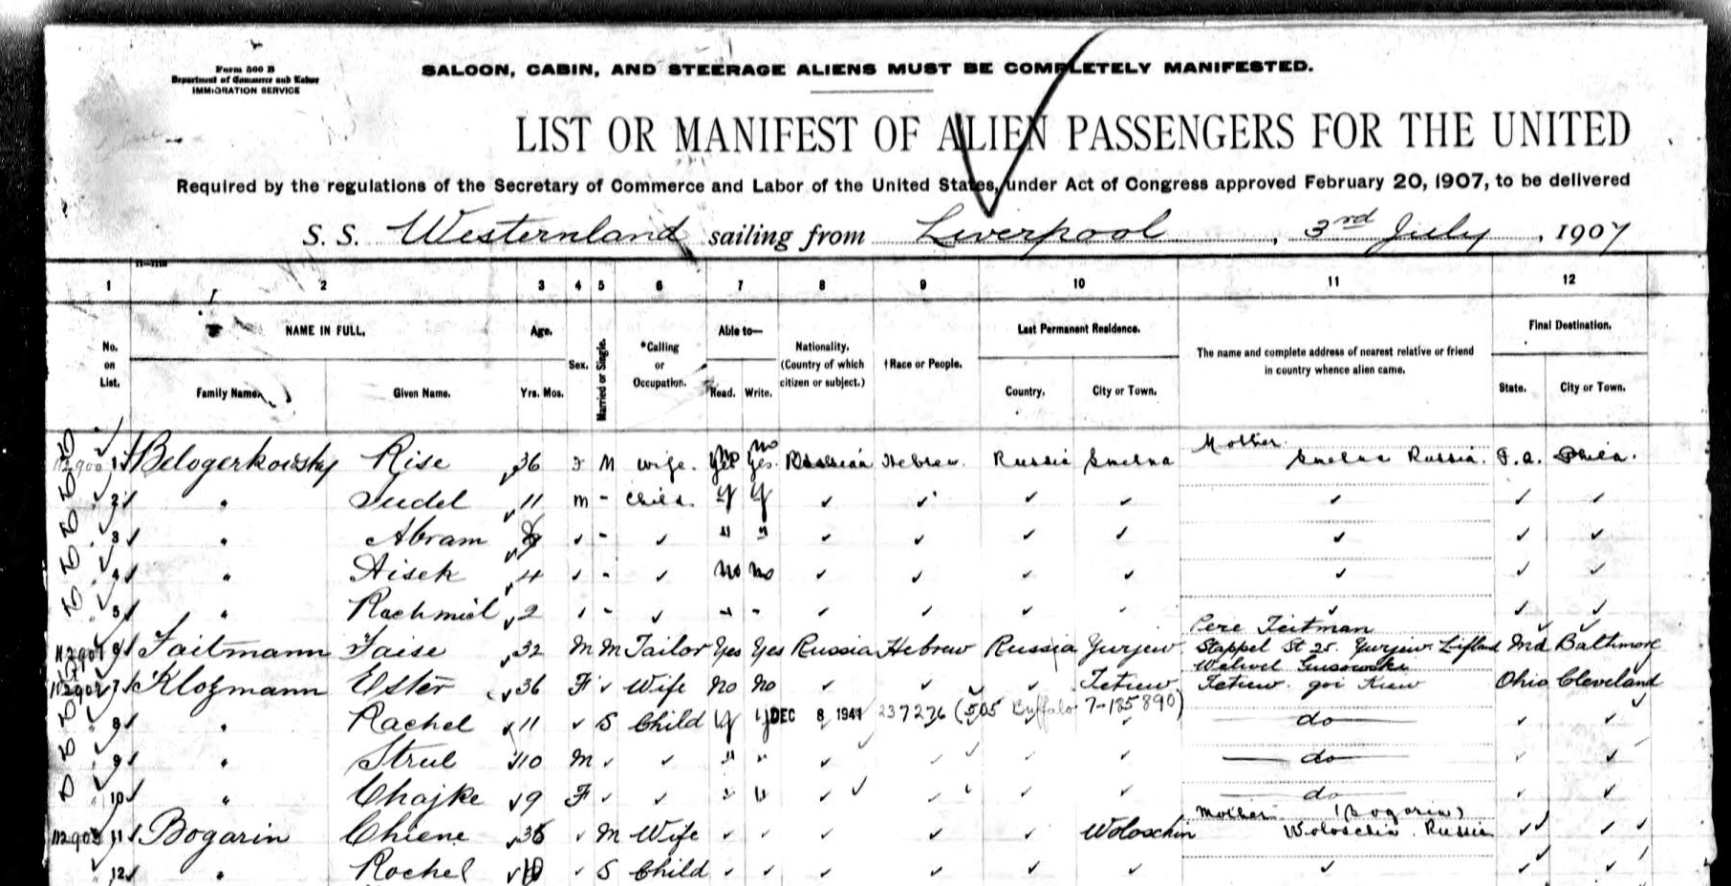 Form 500 B
Department of Commerce and Labor
IMMIGRATION SERVICE
SALOON, CABIN, AND STEERAGE ALIENS MUST BE COMPLETELY MANIFESTED.
LIST OR MANIFEST OF ALIEN PASSENGERS FOR THE UNITED
Required by the regulations of the Secretary of Commerce and Labor of the United States, under Act of Congress approved February 20, 1907, to be delivered
S. S. Westernland sailing from Liverpool, 3rd July, 1907
1 2 3 4 5 6 7 8 9 10 11 12
No. on List. NAME IN FULL. Age. Sex. Married or Single. *Calling or Occupation. Able to— Nationality. (Country of which citizen or subject.) †Race or People. Last Permanent Residence. The name and complete address of nearest relative or friend in country whence alien came. Final Destination.
Family Name. Given Name. Yrs. Mos. Read. Write. Country. City or Town. State. City or Town.
1 Belogerkowsky Rise 36 F M wife. no no Russian Hebrew Russia Smelna Mother Smelna Russia. P.a. Phila.
2 " Judel 11 m - child. y y
3 " Abram - " "
4 " Aisek 4 - no no
5 " Rachmiel 2 - " "
6 Faitmann Taise 32 M M Tailor Yes Yes Russia Hebrew Russia Yurjew Pere Feitman Stappel St 25 Yurjew Lifland Md Baltimore
7 Klozmann Ester 36 F Wife No No Tetiew Tetiew Kiew Ohio Cleveland
8 " Rachel 11 S Child y y DEC 8 1941 237276 (505 Buffalo 7-135890) do
9 " Strul 10 M " " do
10 " Chajke 9 F " " do
11 Bogarin Chiene 36 M Wife Woloschin Mother (Bogarin) Woloschin Russia
12 " Rochel S Child